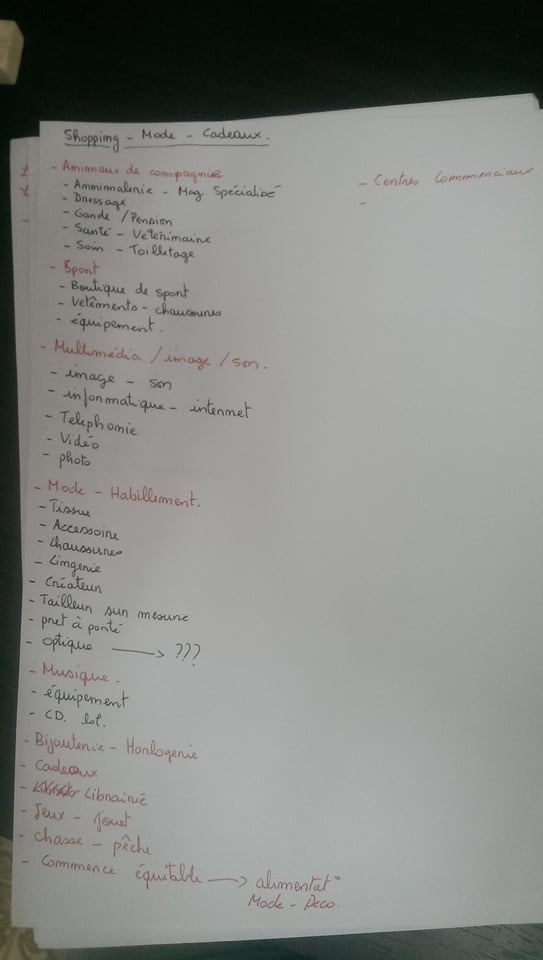 Shopping - Mode - Cadeaux.
- Animaux de compagnie
- Ammimalerie - Mag Spécialisé
- Dressage
- Garde / Pension
- Santé - Vétérinaire
- Soin - Toilletage
- Sport
- Boutique de sport
- Vetêments - chaussures
- équipement.
- Multimédia / image / son.
- image - son
- informatique - internet
- Telephomie
- Vidéo
- photo
- Mode - Habillement.
- Tissue
- Accessoire
- Chaussures
- Lingerie
- Créateur
- Tailleur sur mesure
- pret à porté
- optique → ???
- Musique.
- équipement
- CD. lol.
- Bijouterie - Horlogerie
- Cadeaux
- Librairié
- Jeux - jouet
- chasse - pêche
- Commerce équitable → alimentat°
Mode - Deco.
- Centres Commerciaux
-